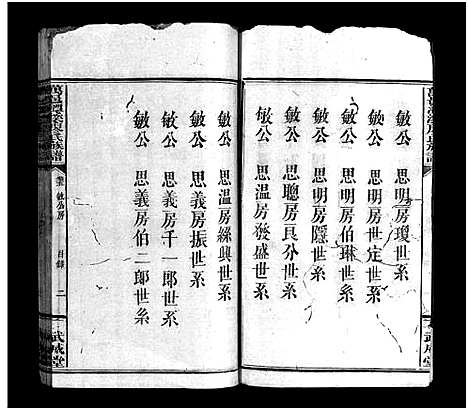 敏公　思明房瓊世系
敏公　思明房世定世系
敏公　思明房伯琳世系
敏公　思明房隱世系
敏公　思聰房良分世系
敏公　思溫房發盛世系
武成堂
敏公　思溫房綠興世系
敏公　思義房振世系
敏公　思義房千一郎世系
敏公　思義房伯二郎世系
族譜
敏公房
目錄
二
武成堂